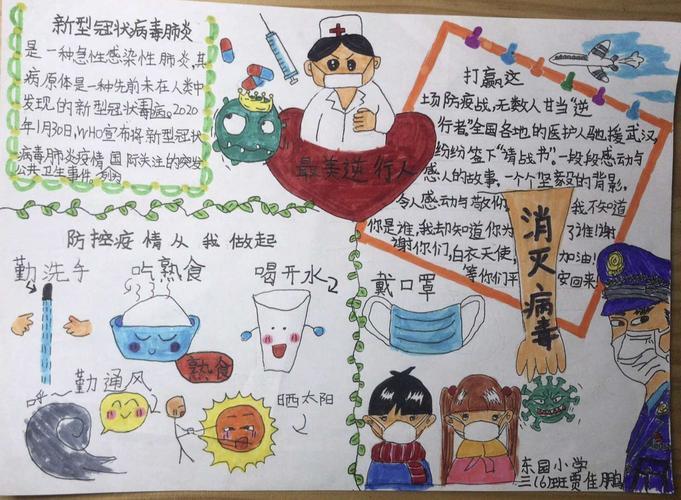 新型冠状病毒肺炎
是一种急性感染性肺炎,其
病原体是一种先前未在人类中
发现的新型冠状病毒。2020
年1月30日,WHO宣布将新型冠状
病毒肺炎疫情 国际关注的突发
公共卫生事件。
最美逆行人
打赢这
场防疫战,无数人甘当"逆
行者"全国各地的医护人驰援武汉,
纷纷签下"请战书"。一段段感动与
感人的故事,一个个坚毅的背影,
令人感动与敬佩。我不知道
你是谁,我却知道你为了谁!谢
谢你们,白衣天使,加油!
等你们平安回来
消灭病毒
防控疫情从我做起
勤洗手
吃熟食
喝开水
戴口罩
熟食
勤通风
呼~
晒太阳
东园小学
三(6)班贾佳鹏